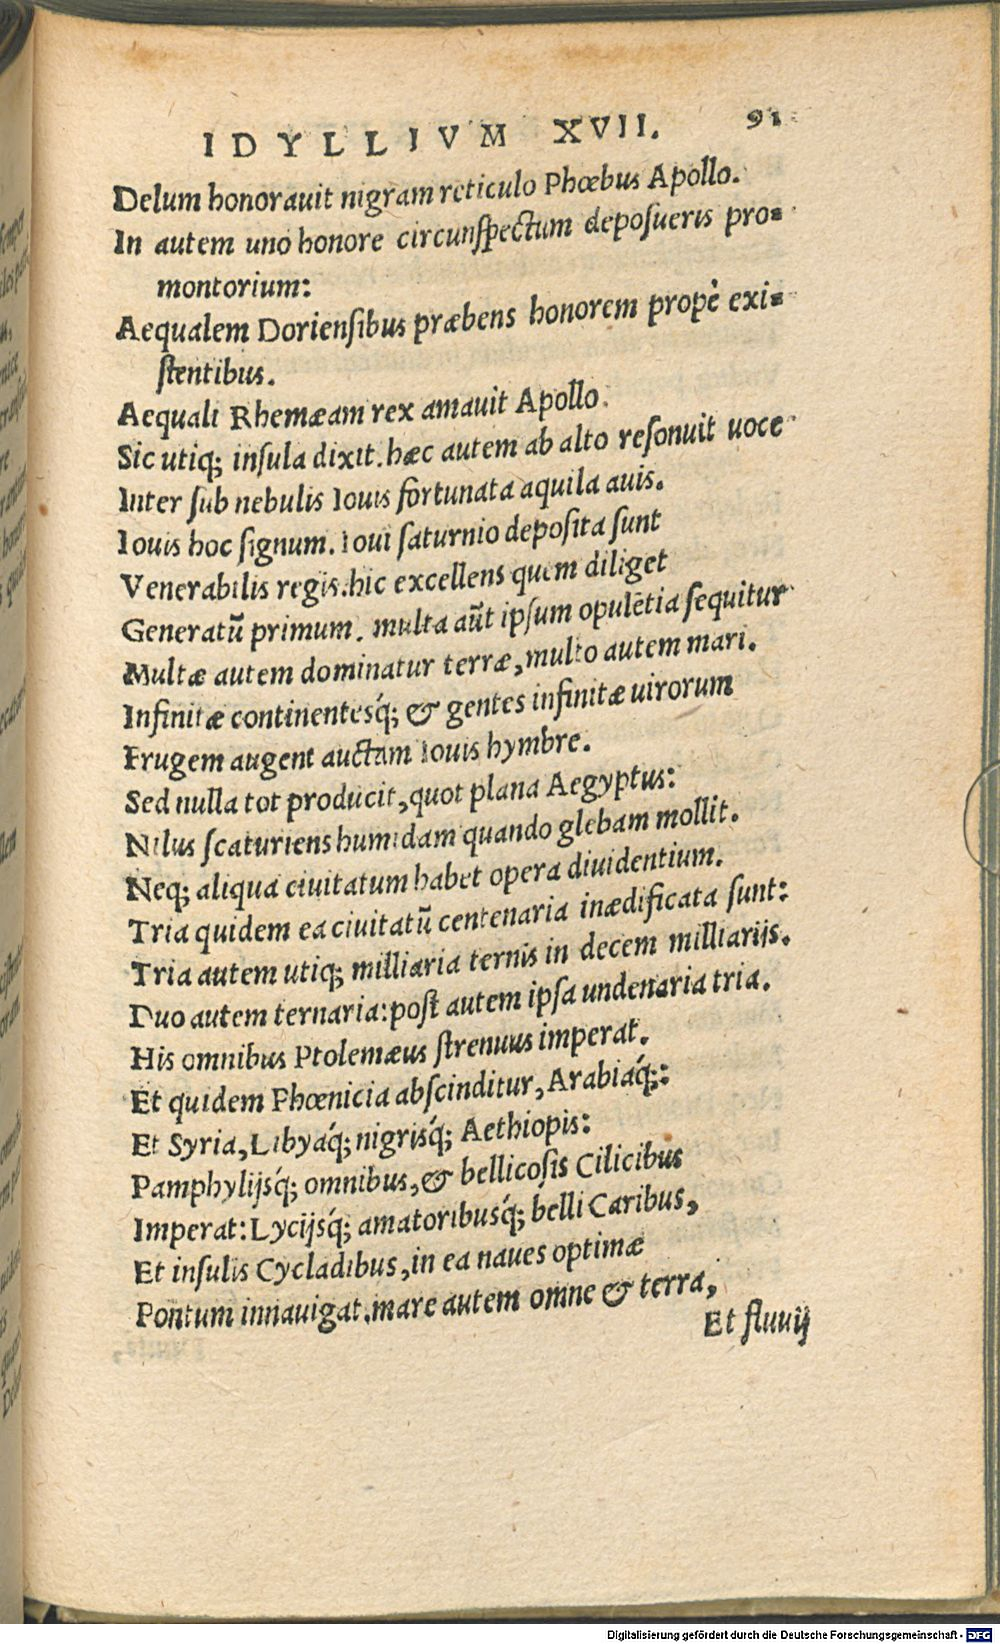 IDYLLIVM XVII. 91
Delum honorauit nigram reticulo Phœbus Apollo.
In autem uno honore circunſpectum depoſueris pro=
montorium:
Aequalem Dorienſibus præbens honorem propè exi=
ſtentibus.
Aequali Rhemæam rex amauit Apollo.
Sic utiq; inſula dixit. hæc autem ab alto reſonuit uoce
Inter ſub nebulis Iouis fortunata aquila auis.
Iouis hoc ſignum. Ioui ſaturnio depoſita ſunt
Venerabilis regis. hic excellens quem diliget
Generatū primum. multa aūt ipſum opulētia ſequitur
Multæ autem dominatur terræ, multo autem mari.
Infinitæ continentesq́; & gentes infinitæ uirorum
Frugem augent auctam Iouis hymbre.
Sed nulla tot producit, quot plana Aegyptus:
Nilus ſcaturiens humidam quando glebam mollit.
Neq; aliqua ciuitatum habet opera diuidentium.
Tria quidem ea ciuitatū centenaria inædificata ſunt:
Tria autem utiq; milliaria ternis in decem milliarijs.
Duo autem ternaria: poſt autem ipſa undenaria tria.
His omnibus Ptolemæus ſtrenuus imperat.
Et quidem Phœnicia abſcinditur, Arabiaq́;:
Et Syria, Libyaq́; nigrisq́; Aethiopis:
Pamphylijsq́; omnibus, & bellicoſis Cilicibus
Imperat: Lycijsq́; amatoribusq́; belli Caribus,
Et inſulis Cycladibus, in ea naues optimæ
Pontum innauigat. mare autem omne & terra,
Et fluuij
Digitalisierung gefördert durch die Deutsche Forschungsgemeinschaft - DFG